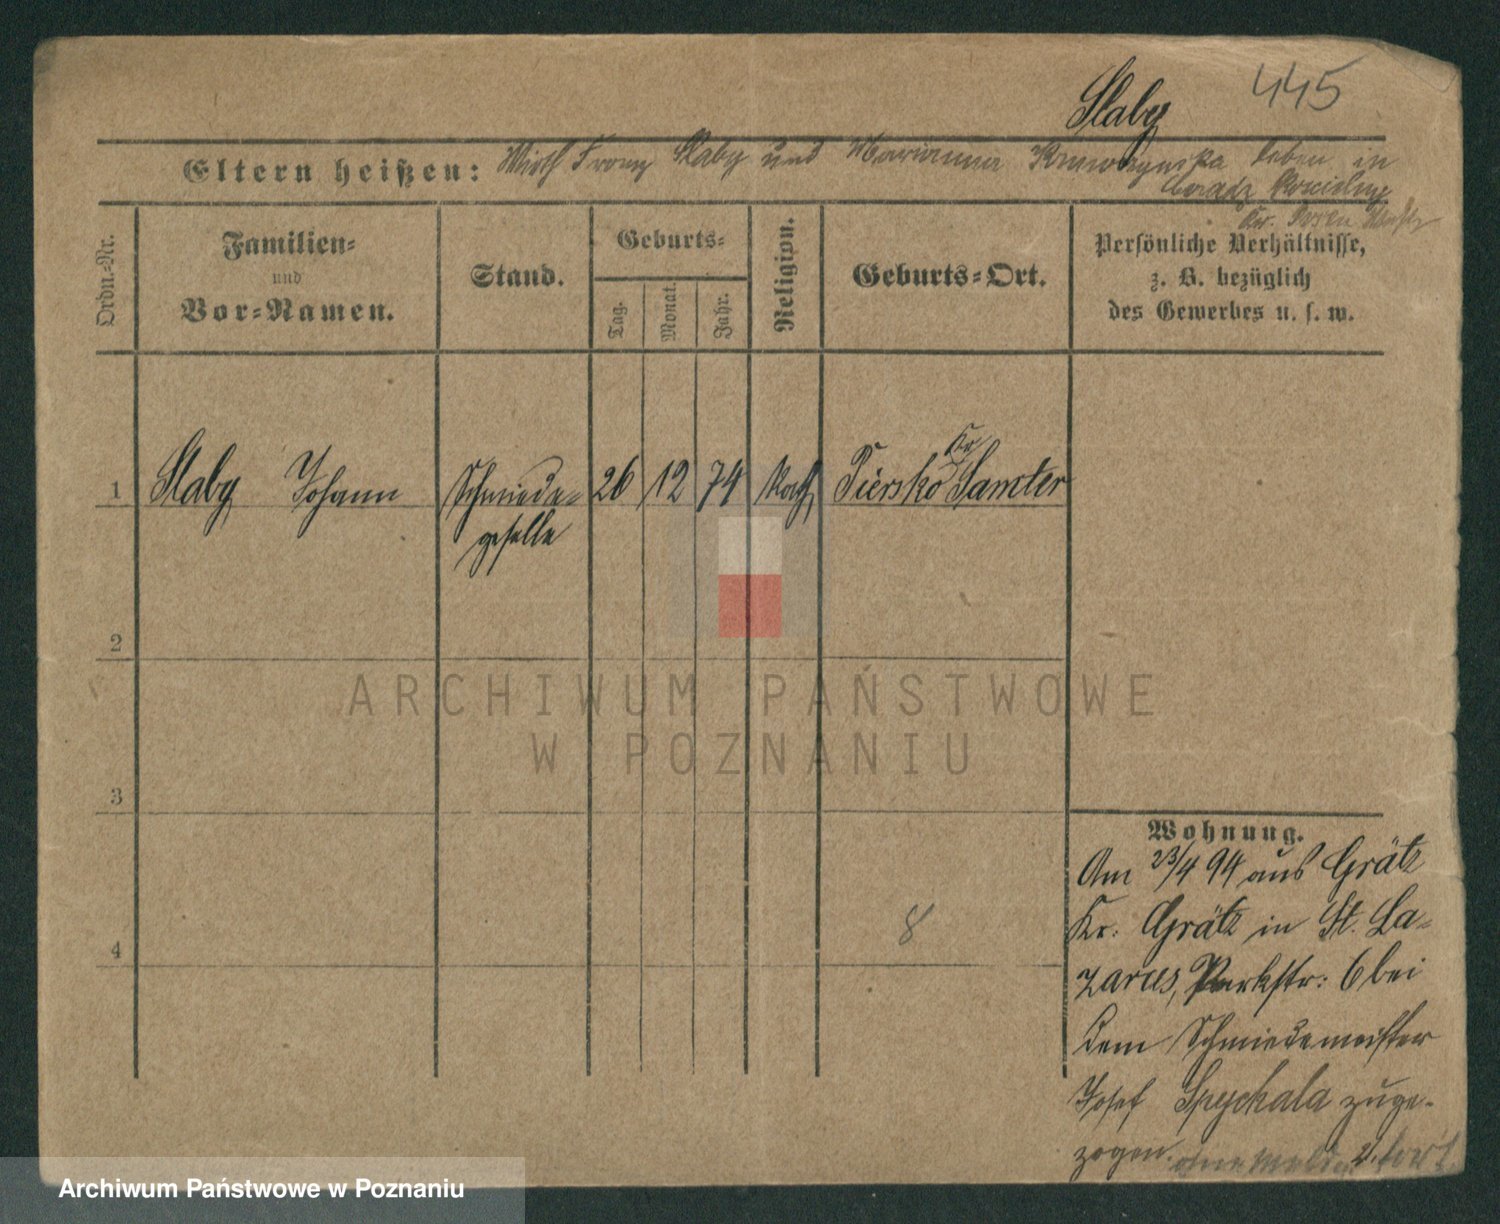 Slaby 445
Eltern heißen: Wirth Franz Slaby und Marianna leben in
Ceradz Kościelny
Kr. Posen West
Ordn.-Nr.
Familien-
und
Vor-Namen.
Stand.
Geburts-
Tag.
Monat.
Jahr.
Religion.
Geburts-Ort.
Persönliche Verhältnisse,
z. B. bezüglich
des Gewerbes u. s. w.
1 Slaby Johann Schmiede- 26 12 74 Kath. Piersko Kr. Samter
geselle
2
3
4
8
Wohnung.
Am 23/4 94 aus Grätz
Kr. Grätz in St. La-
zarus, Parkstr: 6 bei
dem Schmiedemeister
Josef Spychala zuge-
zogen. ohne
ARCHIWUM PAŃSTWOWE
W POZNANIU
Archiwum Państwowe w Poznaniu